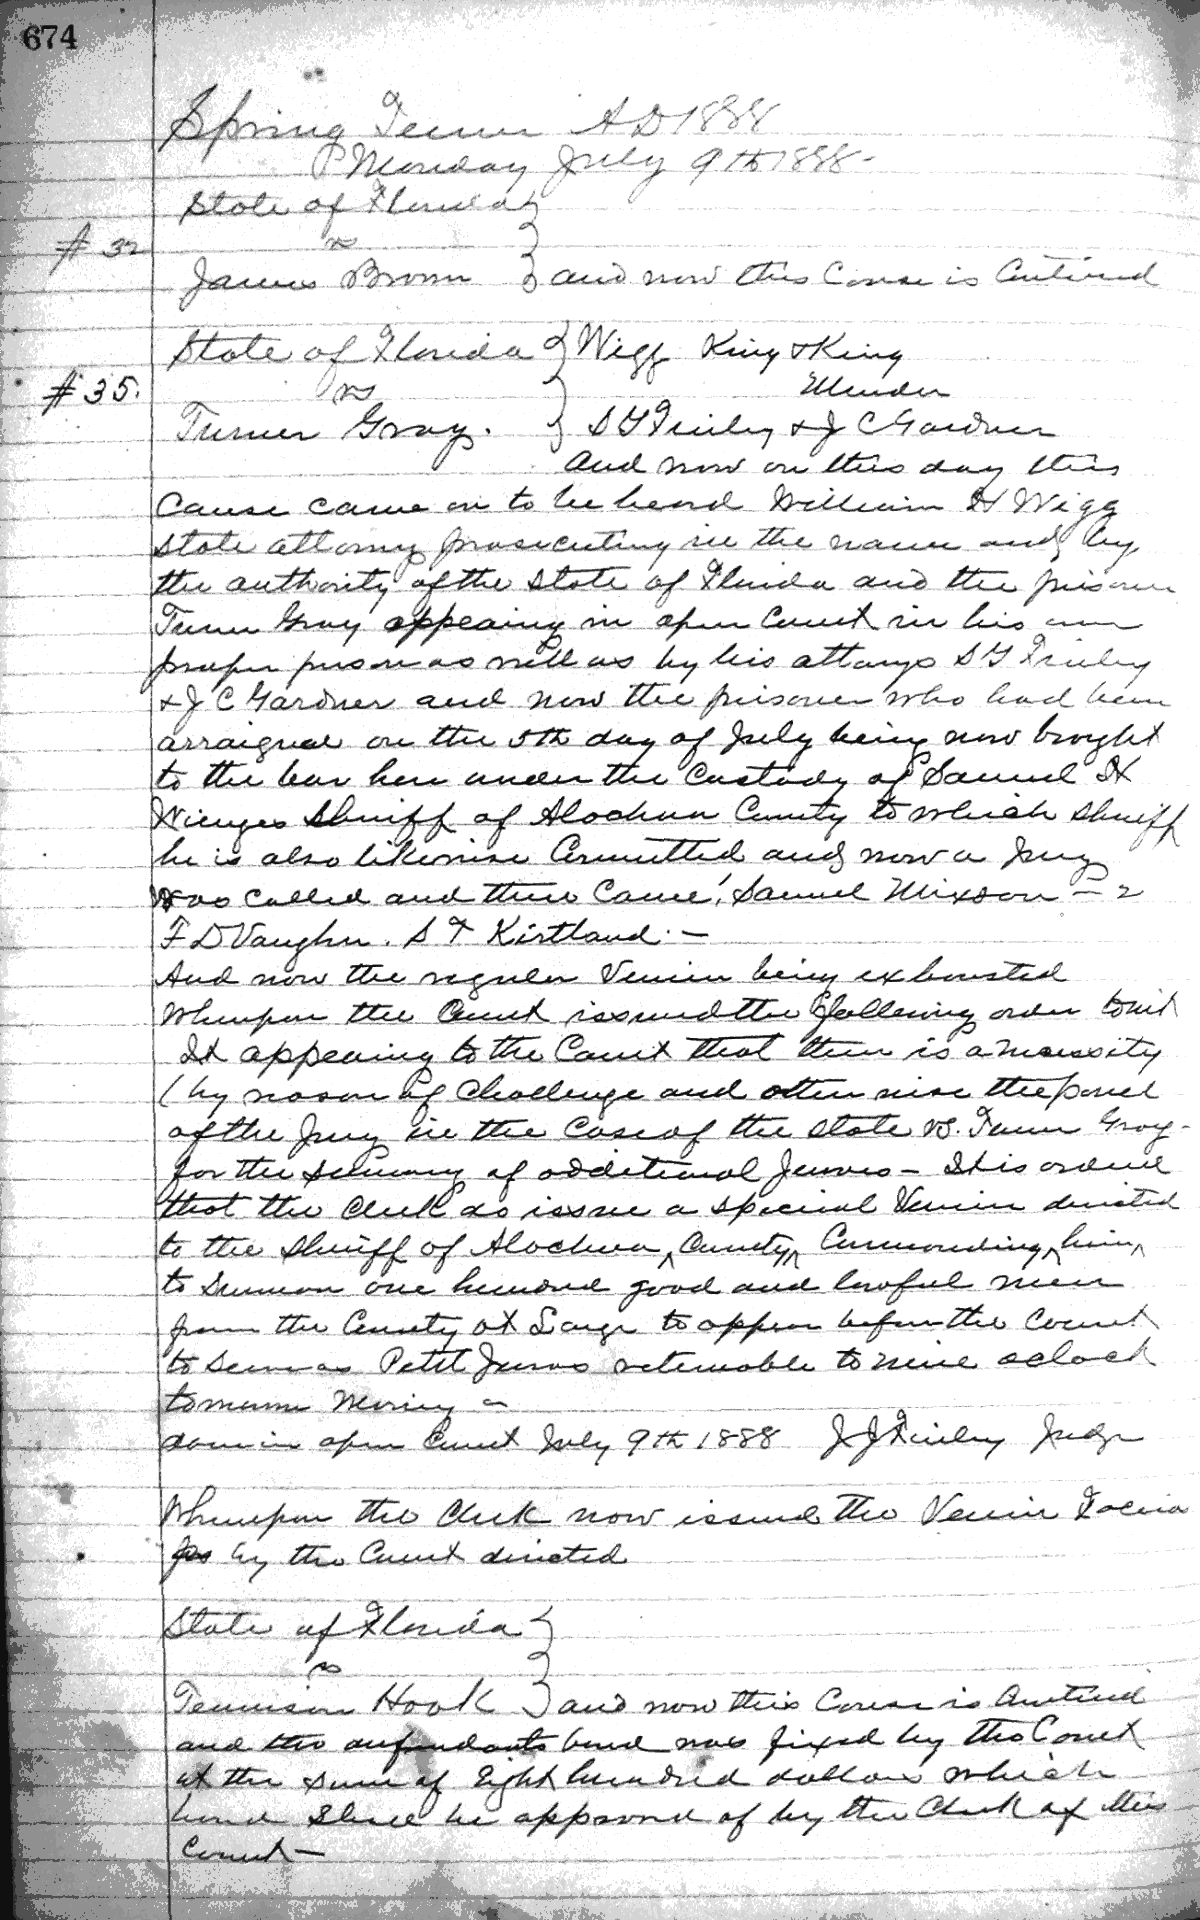 674
Spring Term A D 1888
Monday July 9th 1888-
State of Florida
vs
# 32
James Brown } and now this Cause is Continued
State of Florida } Wigg King & King
# 35.
vs
Murder
Turner Gray. } S Y Finley & J C Gardner
And now on this day this
Cause came on to be heard William H Wigg
State attorney prosecuting in the name and by
the authority of the State of Florida and the prisoner
Turner Gray appearing in open Court in his own
proper person as well as by his attorneys S Y Finley
& J C Gardner and now the prisoner who had been
arraigned on the 5th day of July being now brought
to the bar here under the Custody of Samuel H
Wienges Sheriff of Alachua County to which Sheriff
he is also likewise Committed and now a Jury
was called and there Came, Samuel Mixson - 2
F D Vaughn. S T Kirtland. -
And now the regular Venire being exhausted
Whereupon the Court issued the following order towit
It appearing to the Court that there is a necessity
( by reason of Challenge and otherwise the panel
of the Jury in the Case of the State vs. Turner Gray -
for the summoning of additional Jurors - It is ordered
that the Clerk do issue a special Venire directed
to the Sheriff of Alachua County Commanding him
to summon one hundred good and lawful men
from the County at Large to appear before the Court
to serve as Petit Jurors returnable to nine oclock
tomorrow Morning -
done in open Court July 9th 1888 J J Finley Judge
Whereupon the Clerk now issued the Venire Facias
as by the Court directed
State of Florida
vs
Tennison Hook } and now this Cause is Continued
and the defendants bond was fixed by the Court
at the sum of Eight hundred dollars which
bond shall be approved of by the Clerk of this
Court -